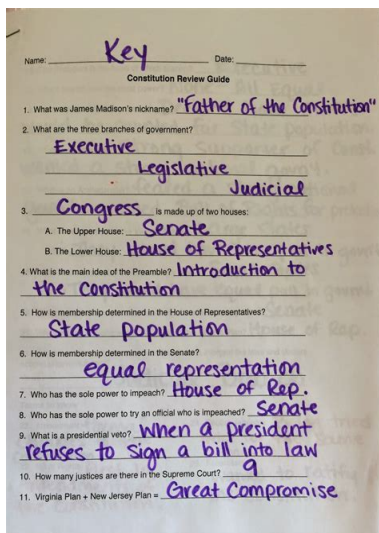 Name: Key Date:
Constitution Review Guide
1. What was James Madison's nickname? "Father of the Constitution"
2. What are the three branches of government?
Executive
Legislative
Judicial
3. Congress is made up of two houses:
A. The Upper House: Senate
B. The Lower House: House of Representatives
4. What is the main idea of the Preamble? Introduction to
the Constitution
5. How is membership determined in the House of Representatives?
State population
6. How is membership determined in the Senate?
equal representation
7. Who has the sole power to impeach? House of Rep.
8. Who has the sole power to try an official who is impeached? Senate
9. What is a presidential veto? When a president
refuses to sign a bill into law
10. How many justices are there in the Supreme Court? 9
11. Virginia Plan + New Jersey Plan = Great Compromise